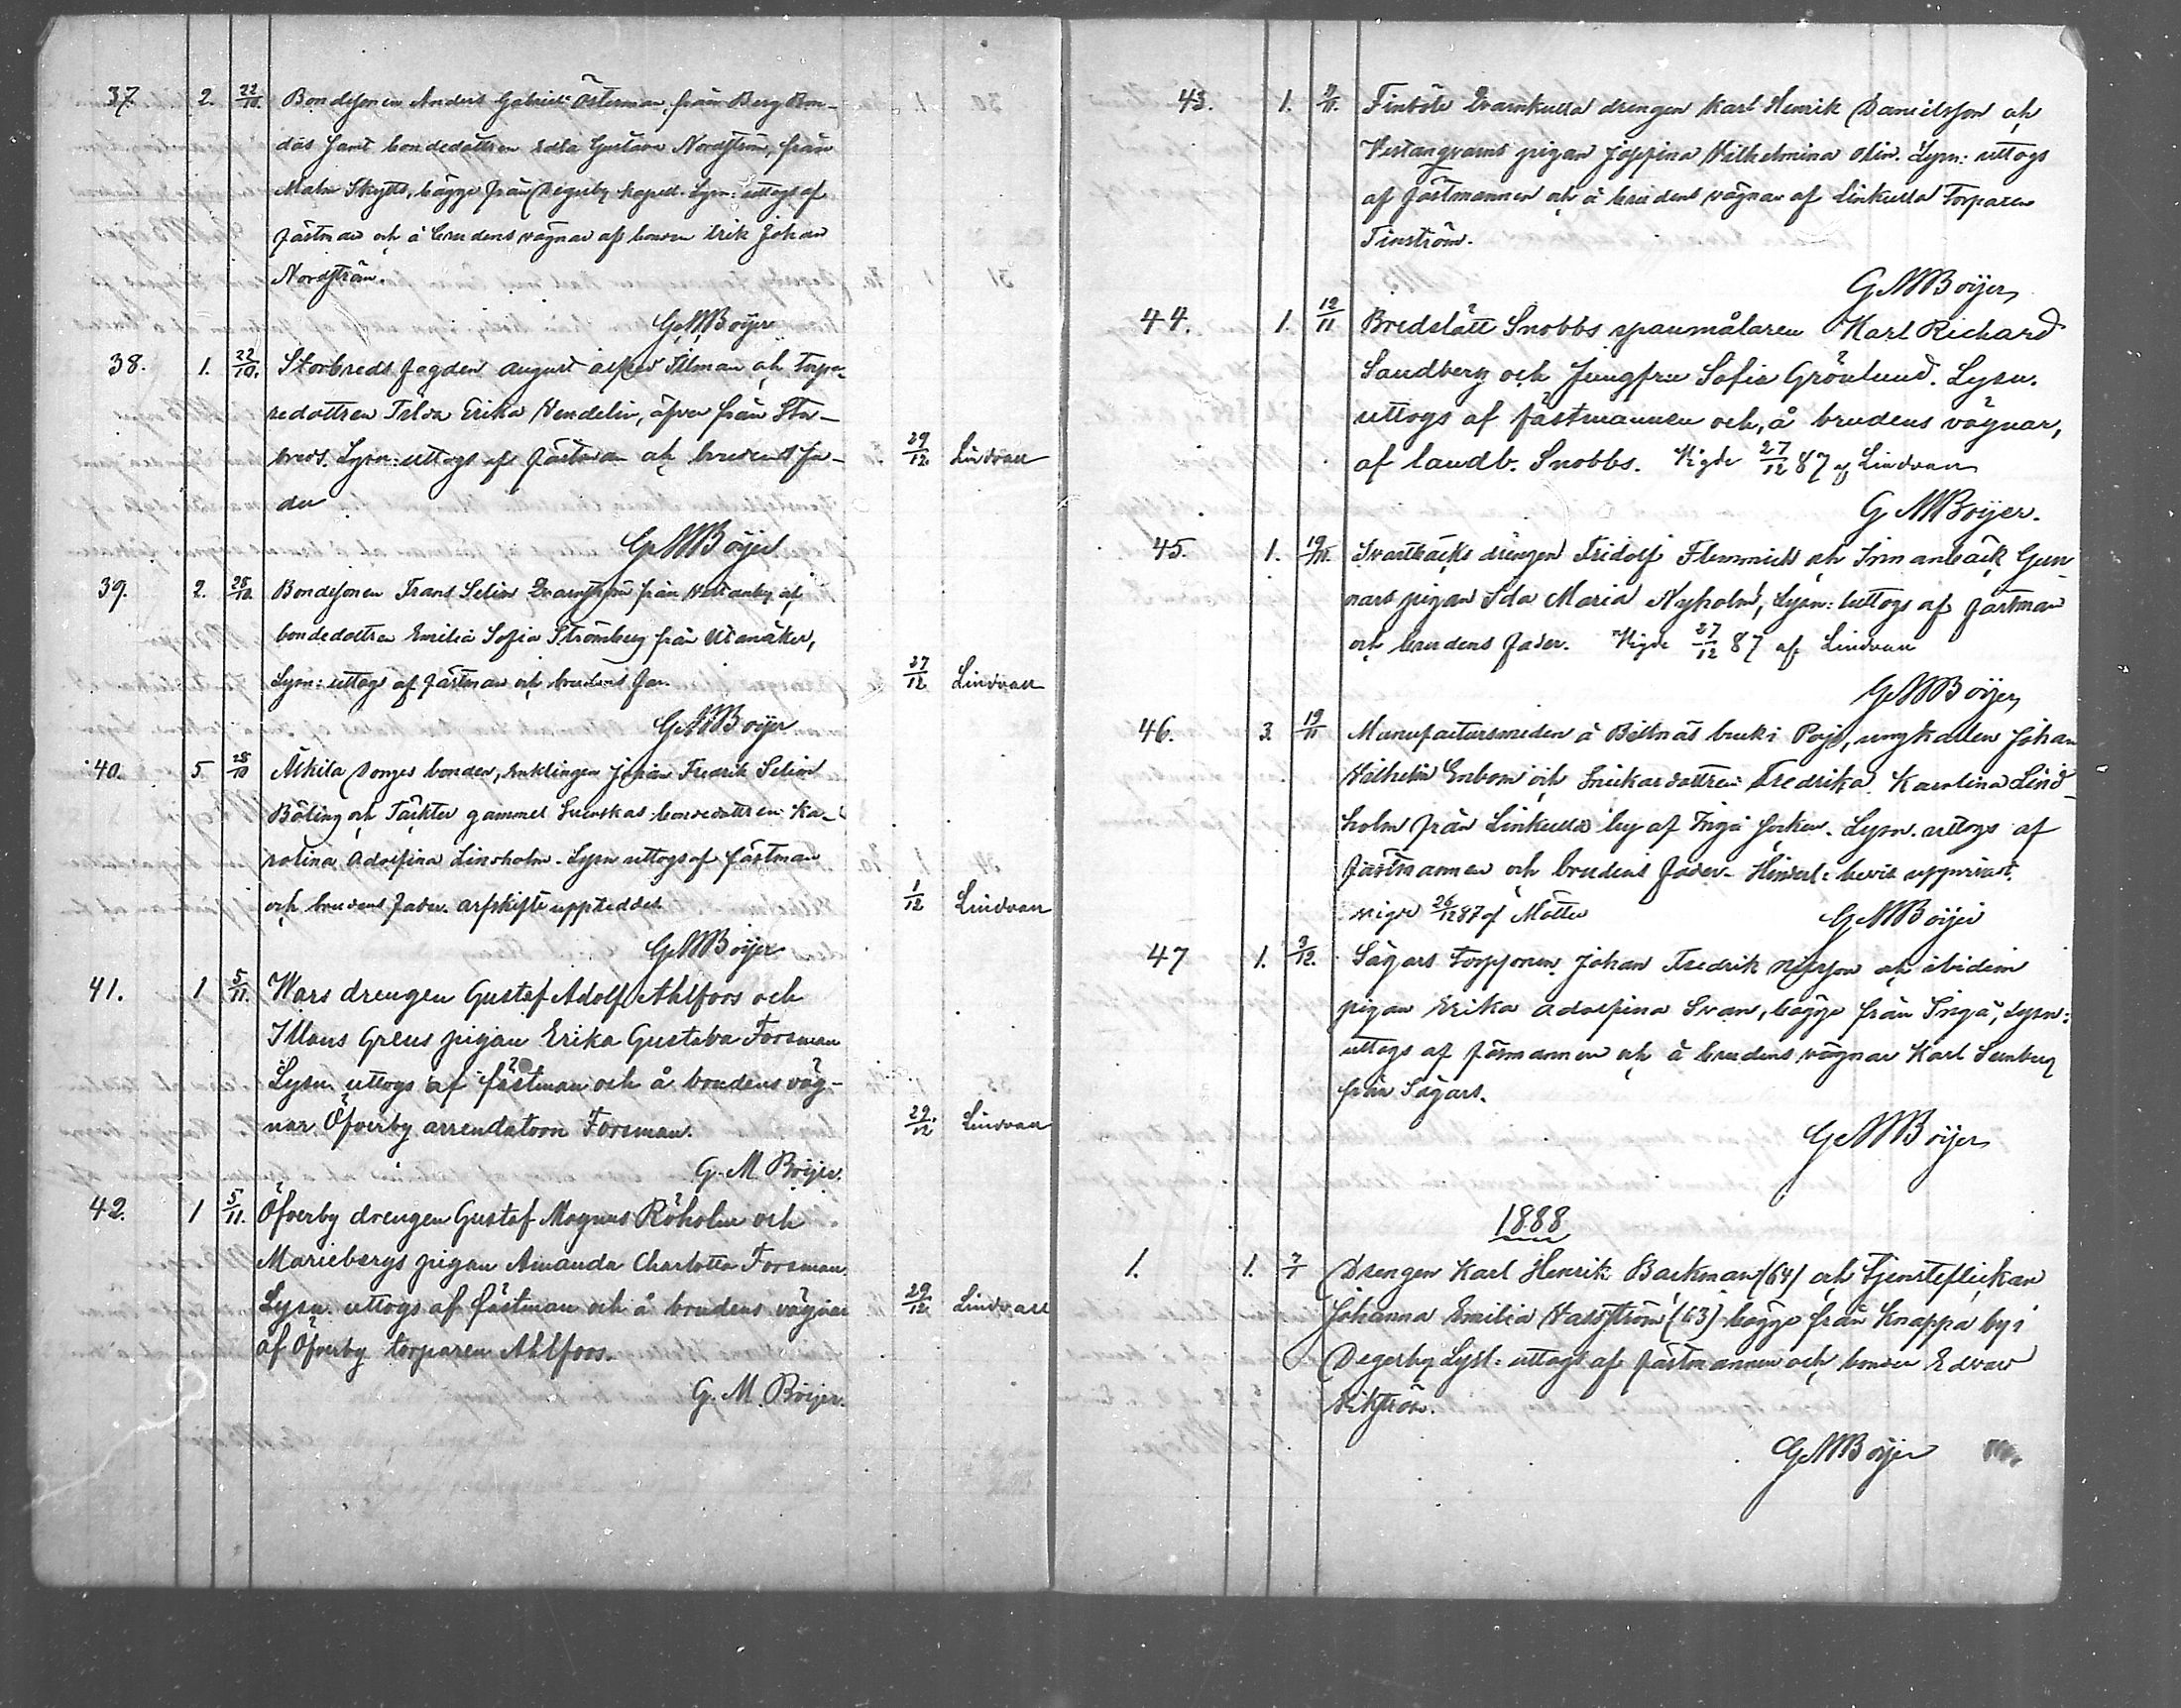 37. 2. 22/10. Bondesonen Anders Gabriel Österman från Berg Bon-
das samt bondedottren Edla Gustava Nordström, från
Malm Skytts, bägge från Degerby kapell. Lysn: uttogs af
fästman och å brudens vägnar af bonden Erik Johan
Nordström.
G M Böijer
38. 1. 22/10. Storbreds fogden August Alfred Illman och torpa-
redottren Tilda Erika Vendelin, äfven från Stor-
breds. Lysn: uttogs af fästman och brudens fa- 29/12. Lindvall
der
G M Böijer
39. 2. 28/10. Bondesonen Frans Selim Qvarnström från Westanby och
bondedottren Emilia Sofia Strömberg från Utanåker,
Lysn: uttogs af fästman och brudens far. 27/12 Lindvall
G M Böijer
40. 5 28/10 Alkila Donges bonden, Enklingen Johan Fredrik Selim
Böling och Täckter gammel Svenskas bondedottren Ka-
rolina Adolfina Lindholm. Lysn uttogs af fästman
och brudens fader. Arfskifte uppteddes. 1/12 Lindvall
G M Böijer
41. 1 5/11. Wars drengen Gustaf Adolf Ahlfors och
Illans Grens pigan Erika Gustava Forsman
Lysn. uttogs af fästman och å brudens väg-
nar Öfverby arrendatorn Forsman. 29/12 Lindvall
G. M. Böijer.
42. 1 5/11. Öfverby drengen Gustaf Magnus Röholm och
Mariebergs pigan Amanda Charlotta Forsman.
Lysn. uttogs af fästman och å brudens vägnar 29/12. Lindvall
af Öfverby torparen Ahlfors.
G. M. Böijer.
43. 1. 9/11. Finböle Qvarnkulla drengen Karl Henrik Danielsson och
Vestanqvarns pigan Josefina Wilhelmina Olin. Lysn: uttogs
af fästmannen och å brudens vägnar af Linkulla Torparen
Finström.
G M Böijer
44. 1. 12/11 Bredslätt Snobbs spanmålaren Karl Richard
Sandberg och Jungfru Sofia Grönlund. Lysn.
uttogs af fästmannen och, å brudens vägnar,
af landb. Snobbs. Vigde 27/12 87 af Lindvall
G M Böijer.
45. 1. 19/11. Svartbäcks drengen Fridolf Flemmich och Innanbäck Gun-
nars pigan Ida Maria Nyholm, Lysn: uttogs af fästman
och brudens fader. Vigde 27/12 87 af Lindvall
G M Böijer
46. 3. 19/11 Manufactursmeden å Billnäs bruk i Pojo, ungkarlen Johan
Wilhelm Enbom och Snickardottren Fredrika Karolina Lind-
holm från Linkulla by af Ingå socken. Lysn. uttogs af
fästmannen och brudens fader. Hinderl: bevis uppvisat.
vigde 26/12 87 af Möller G M Böijer
47 1. 3/12. Sågars torpsonen Johan Fredrik Nilsson och ibidem
pigan Erika Adolfina Svan, bägge från Ingå, Lysn:
uttogs af fäsmannen och å brudens vägnar Karl Sunberg
från Sågars.
G M Böijer
1888
1. 1. 7/1 Drengen Karl Henrik Backman (64) och Tjensteflickan
Johanna Emilia Valdström (63) bägge från Knappa by i
Degerby Lysn: uttogs af fästmannen och bonden Edvar
Vikström.
G M Böijer